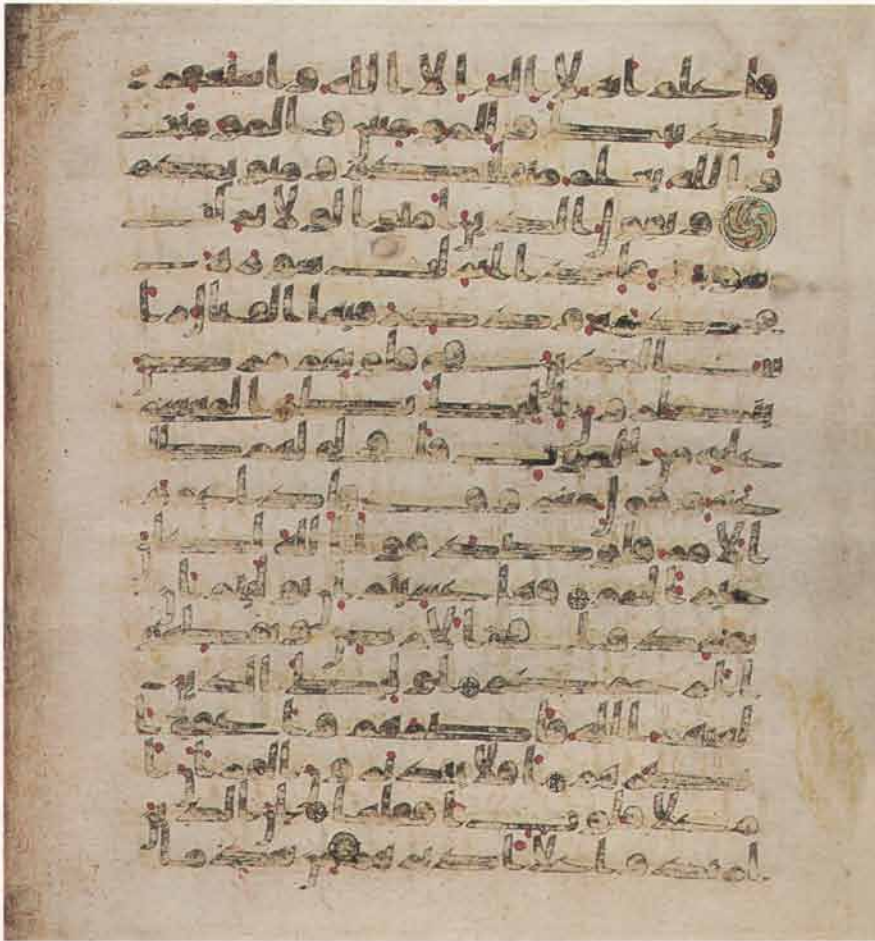 فاعلم انه لا اله الا الله واستغفر
لذنبك وللمومنين والمومنت
والله يعلم متقلبكم ومثويكم
ويقول الذين امنوا لولا نزلت
سورة فاذا انزلت سورة
محكمة وذكر فيها القتال را
يت الذين في قلوبهم مرض
ينظرون اليك نظر المغشي
عليه من الموت فاولى لهم طا
عة وقول معروف فاذا عزم
الامر فلو صدقوا الله لكان
خيرا لهم فهل عسيتم ان توليتم ا
ن تفسدوا في الارض وتقطعوا
ارحامكم اولئك الذين
لعنهم الله فاصمهم واعمى ا
بصرهم افلا يتدبرون القران ا
م على قلوب اقفالها ان الذين
ارتدوا على ادبرهم من بعد ما